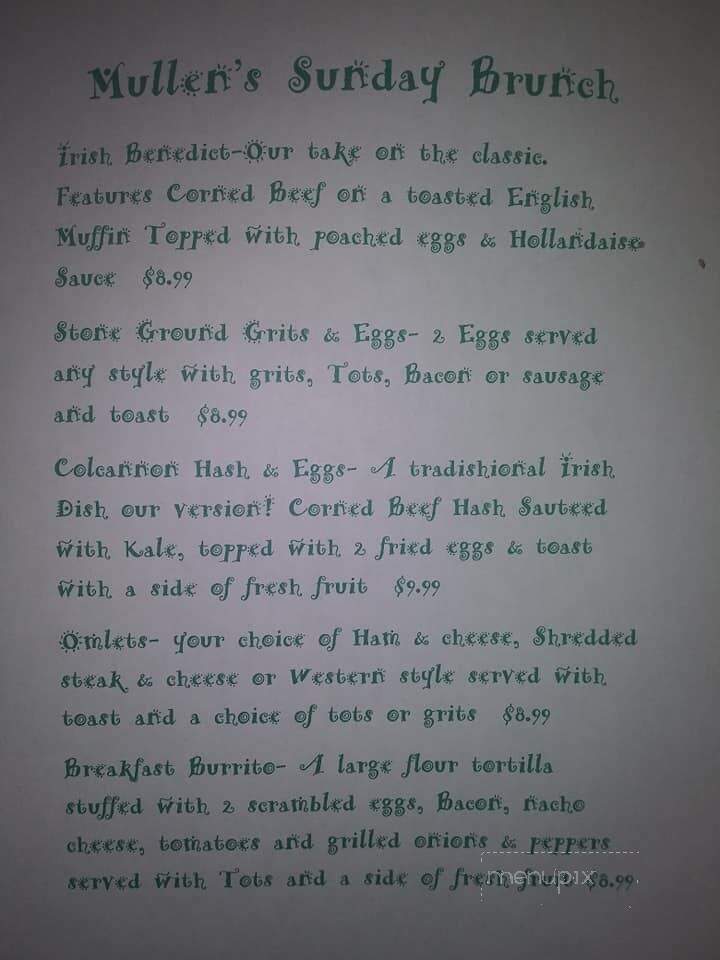 Mullen's Sunday Brunch
Irish Benedict-Our take on the classic.
Features Corned Beef on a toasted English
Muffin Topped with poached eggs & Hollandaise
Sauce $8.99
Stone Ground Grits & Eggs- 2 Eggs served
any style with grits, Tots, Bacon or sausage
and toast $8.99
Colcannon Hash & Eggs- A tradishional Irish
Dish our version! Corned Beef Hash Sauteed
with Kale, topped with 2 fried eggs & toast
with a side of fresh fruit $9.99
Omlets- your choice of Ham & cheese, Shredded
steak & cheese or Western style served with
toast and a choice of tots or grits $8.99
Breakfast Burrito- A large flour tortilla
stuffed with 2 scrambled eggs, Bacon, nacho
cheese, tomatoes and grilled onions & peppers
served with Tots and a side of fresh fruit $8.99
menupix